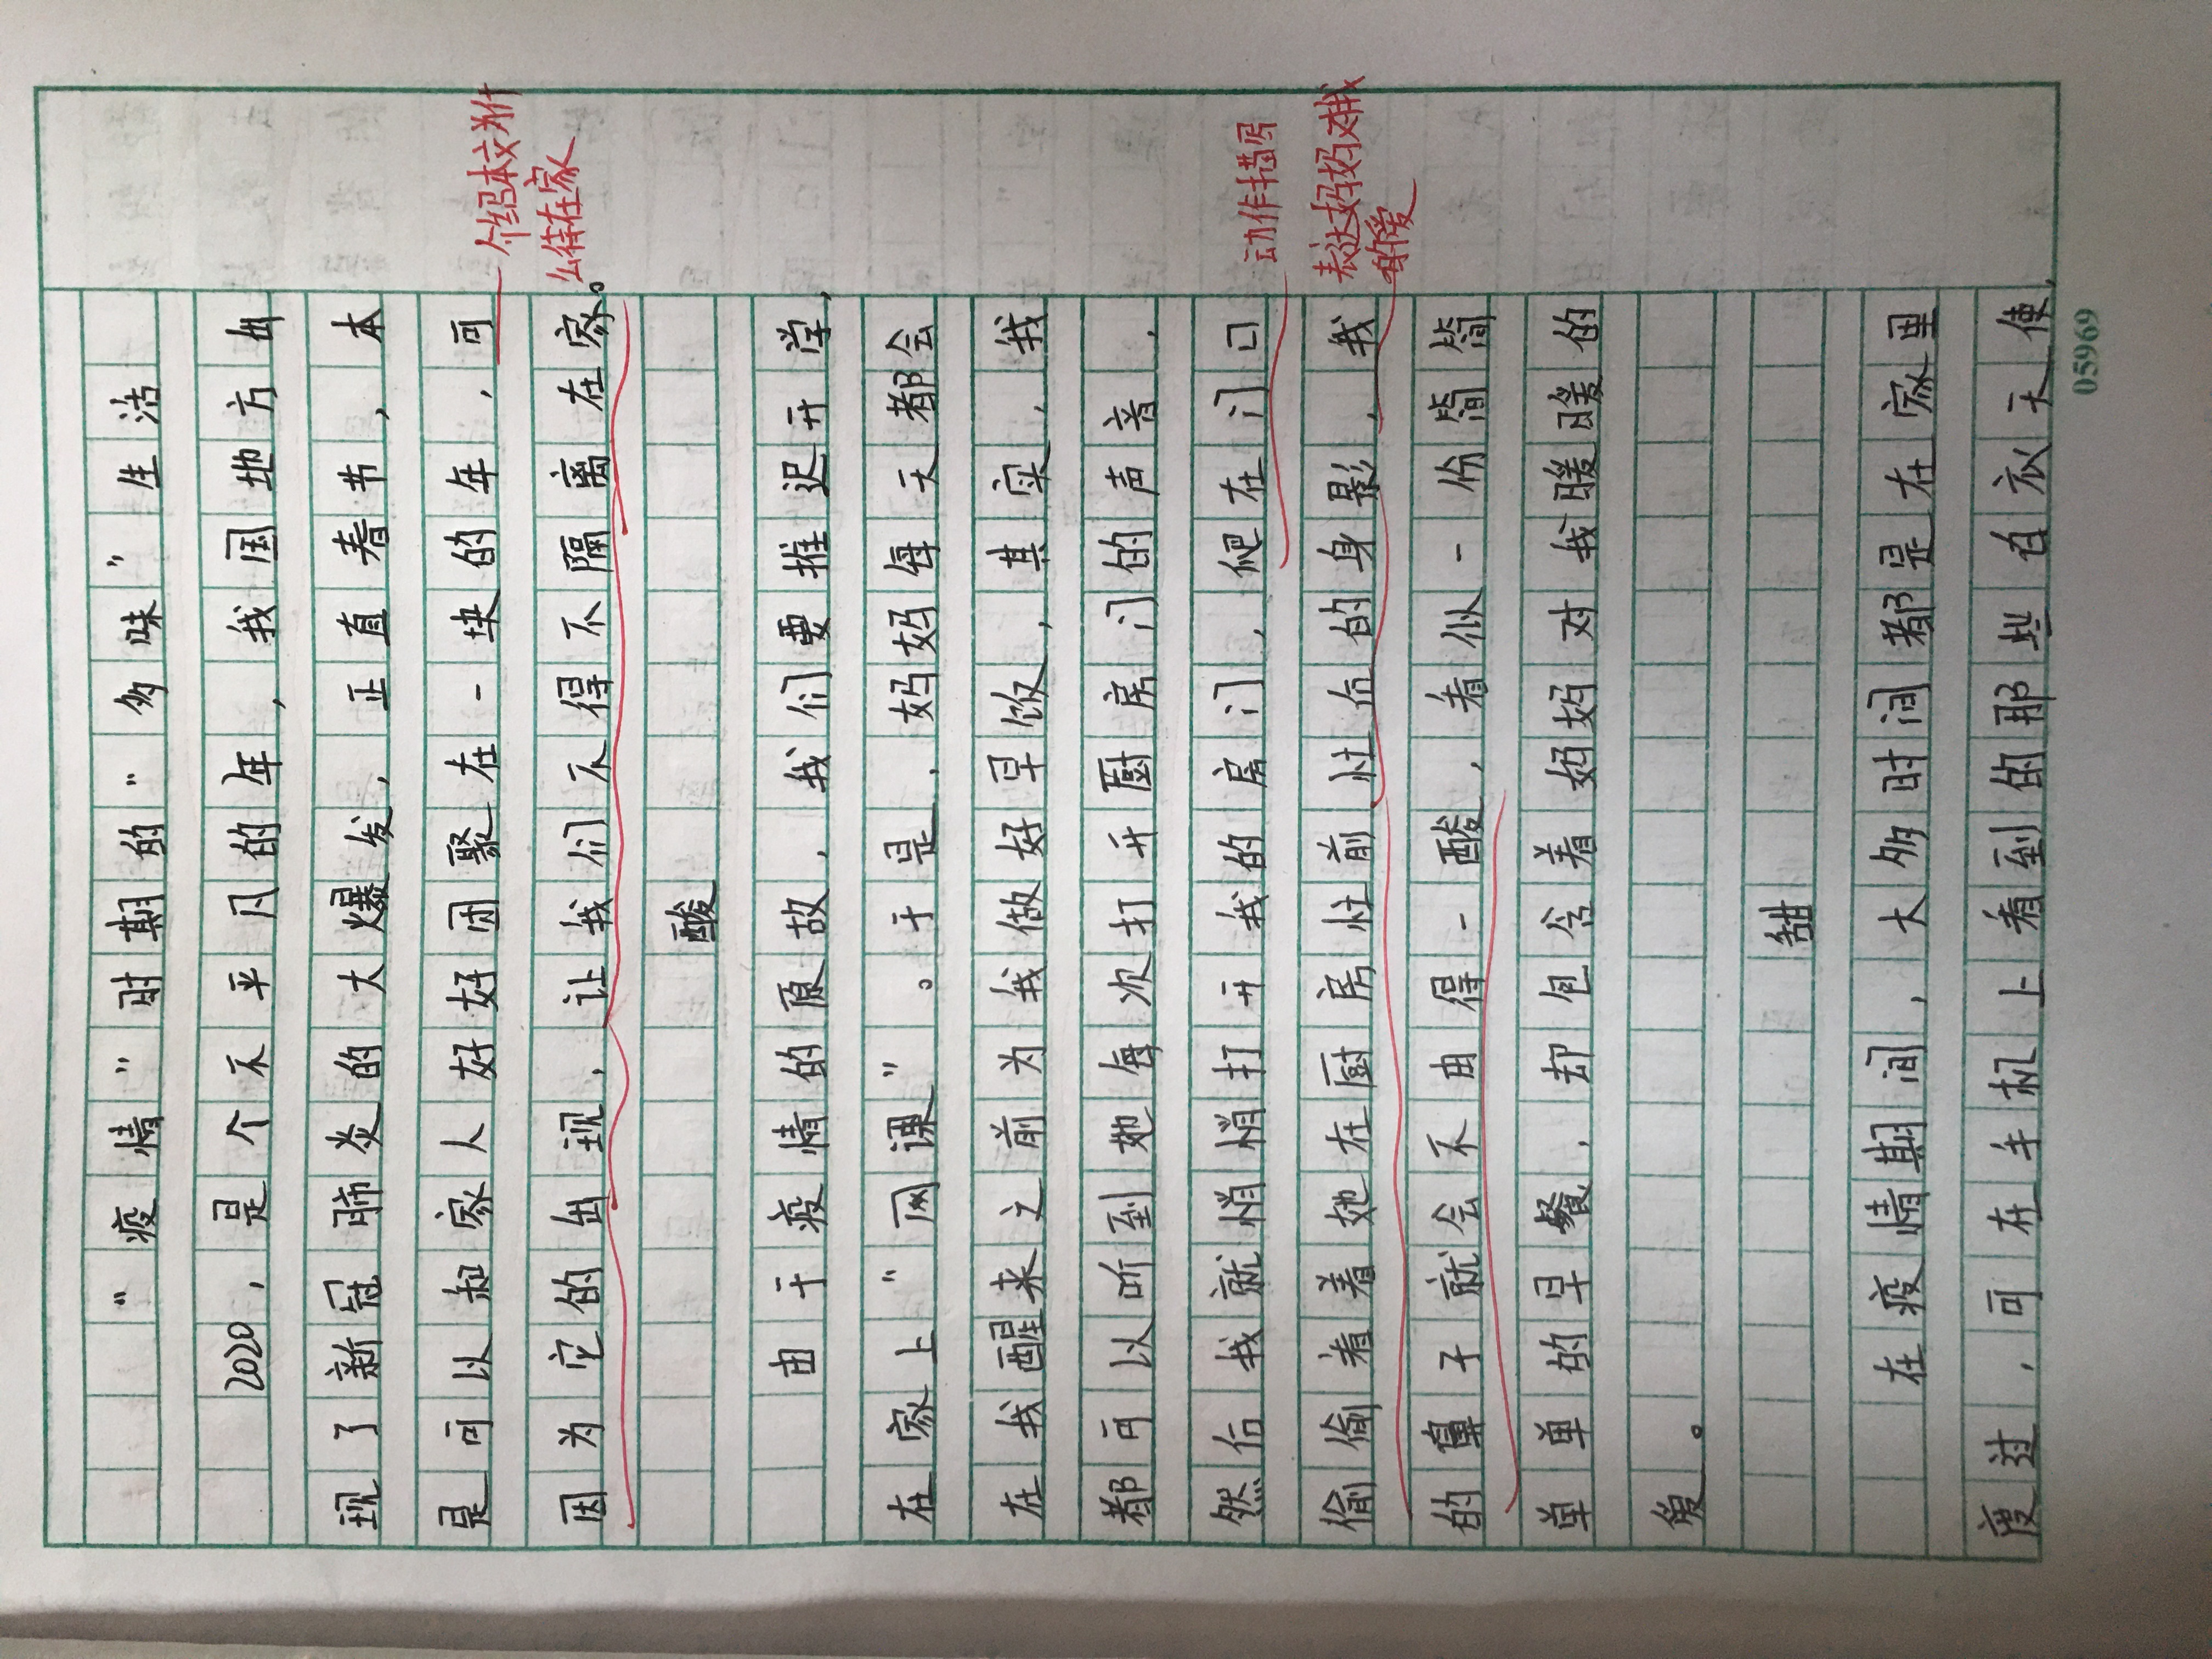 “疫情”时期的“多味”生活
2020，是个不平凡的年，我国地方出
现了新冠肺炎的大爆发，正直春节，本
是可以和家人好好团聚在一块的年，可
介绍本文为什
因为它的出现，让我们不得不隔离在家。
么待在家
酸
由于疫情的原故，我们要推迟开学，
在家上“网课”。于是，妈妈每天都会
在我醒来之前为我做好早饭，其实，我
都可以听到她每次打开厨房门的声音，
然后我就悄悄打开我的房门，爬在门口
动作描写
偷偷看着她在厨房灶前灶台的身影，我
表达妈妈对我
的爱
的鼻子就会不由得一酸，看似一份简简
单单的早餐，却包含着妈妈对我暖暖的
爱。
甜
在疫情期间，大多时间都是在家里
度过，可在手机上看到的那些白衣天使，
05969